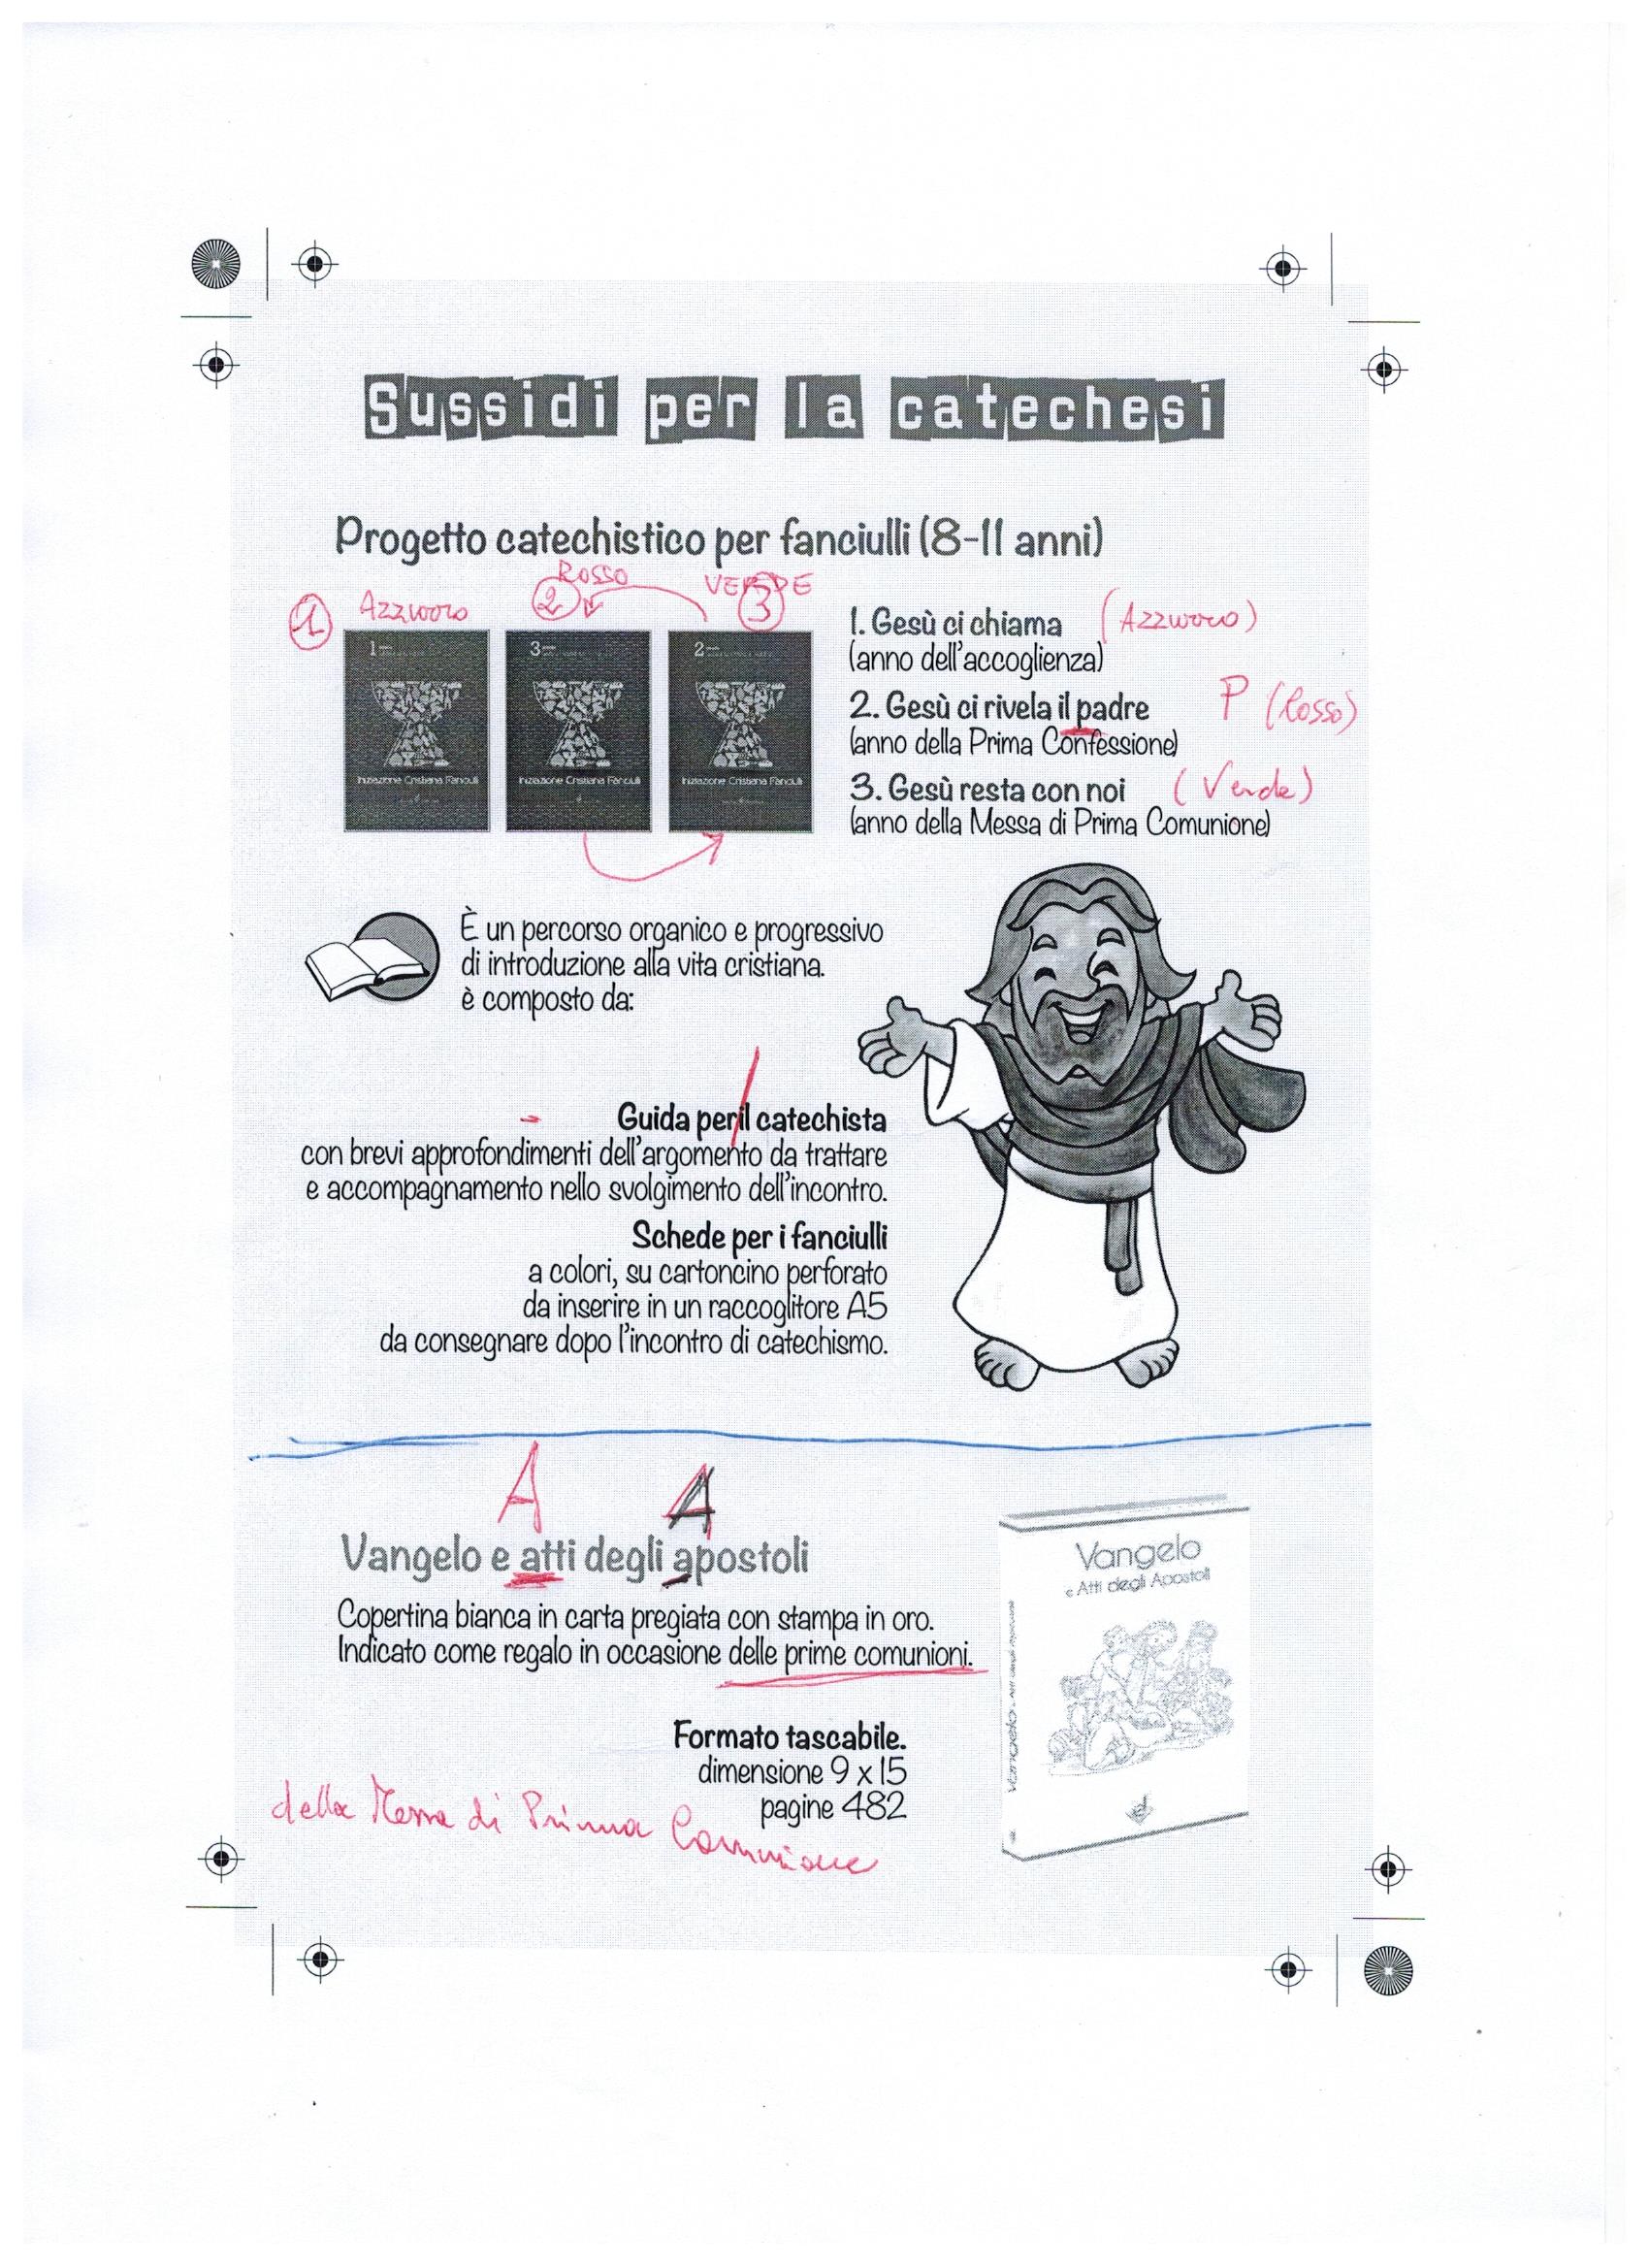 Sussidi per la catechesi
Progetto catechistico per fanciulli (8-11 anni)
1 AZZURRO 2 ROSSO VERDE 3
1
Iniziazione Cristiana Fanciulli
3
Iniziazione Cristiana Fanciulli
2
Iniziazione Cristiana Fanciulli
1. Gesù ci chiama (AZZURRO)
(anno dell'accoglienza)
2. Gesù ci rivela il padre P (Rosso)
(anno della Prima Confessione)
3. Gesù resta con noi (Verde)
(anno della Messa di Prima Comunione)
È un percorso organico e progressivo
di introduzione alla vita cristiana.
è composto da:
Guida peril catechista
con brevi approfondimenti dell'argomento da trattare
e accompagnamento nello svolgimento dell'incontro.
Schede per i fanciulli
a colori, su cartoncino perforato
da inserire in un raccoglitore A5
da consegnare dopo l'incontro di catechismo.
A A
Vangelo e atti degli apostoli
Copertina bianca in carta pregiata con stampa in oro.
Indicato come regalo in occasione delle prime comunioni.
Formato tascabile.
dimensione 9 x 15
pagine 482
della Messa di Prima Comunione
Vangelo
e Atti degli Apostoli
Vangelo e Atti degli Apostoli